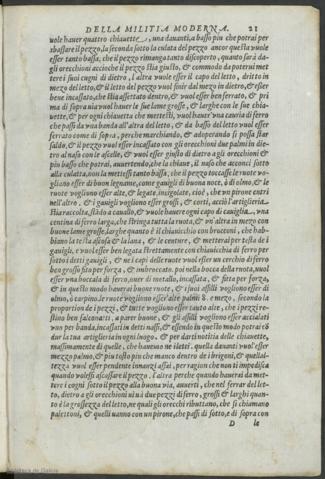 DELLA MILITIA MODERNA. 21
vuole hauer quattro chiauette, una dauanti, a basso più che potrai per
abassare il pezzo, la seconda sotto la culata del pezzo ancor questa vuole
esser tanto bassa, che il pezzo rimanga tanto discoperto, quanto sarà da-
gli orecchioni accioche il pezzo stia giusto, & commodo da potersi met
tere i suoi cugni di dietro, l'altra vuole esser il capo del letto, dritto in
mezo del letto, & il letto del pezzo vuol finir dal mezo in dietro, & esser
bene incassato, che stia assettato dentro, & vuol esser ben ferrato, & pri
ma di sopra uia vuol hauer le sue lame grosse, & larghe con le sue chia-
uette, & per ogni chiauetta che metteßi, vuol hauer una cauria di ferro
che paßi da una banda all'altra del letto, & da basso del letto vuol esser
ferrato come di sopra, perche marchiando, & adoperando si possa star
saldo. & il pezzo vuol esser incassato con gli orecchioni due palmi in die-
tro al naso con le ascelle, & vuol esser giusto di dietro a gli orecchioni el
più basso che potrai, auuertendo, che la chiaue, il naso che acconci sotto
alla culatta, non la metteßi tanto bassa, che il pezzo toccasse le ruote vo-
gliono esser di buon legname, come gauigli di buona noce, ò di olmo, & le
ruote vogliono esser alte, & legate, incigolate, cioè, che un pirone entri
nell'altro. & i gauigli vogliono esser grossi, & corti, acciò l'artiglieria
stia raccolta, stia à cauallo, & vuole hauere ogni capo di cauiglia, una
centina di ferro larga, che stringa tutta la ruota, & un'altra in mezo con
buone lame grosse, larghe quanto è il chiauicchio con broccuni, che hab-
biano la testa ascosa & la lana, & le centure, & metterai per testa de i
gauigli, e vuol esser ben legata strettamente con chiauicchia di ferro per
sotto i detti gauigli, & ne i capi delle ruote vuol esser un cerchio di ferro
ben grosso fitto per forza, & imbroccato. poi nella bocca della ruota, uuol
esser una boccala di ferro, ouer di metallo, incassata, & fitta per forza,
& in questo modo hauerai buone ruote, & i suoi assili vogliono esser di
olmo, ò carpino. le ruote vogliono esser alte palmi 8. e mezo, secondo la
proportion de i pezzi, & tutte vogliono esser tanto alte, che i pezzi re-
stino ben scaluatti, a parer buone, & gli assili vogliono esser acciaiati
uun per banda, incassati in detti naßi, & essendo in questo modo potrai cõ
dur la tua artiglieria in ogni luogo. & per darti notitia delle chiauette,
massimamente di quelle, che haueuo ne i letti. quella dauanti vuol esser
mezzo palmo, & più tosto più che manco dentro de i trigoni, & quella al-
tezza vuol esser pendente innanzi assai, per ragion che non ti impedisca
quando volessi ascassare il pezzo. l'altra perche quando hauerai da met-
tere i cogni sotto il pezzo alla buona via, auuerti, che nel ferrar del let-
to, dietro a gli orecchioni ui uà due pezzi di ferro, grossi & larghi quan-
to è la grossezza del letto, ne quali gli orecchi ributtano, che si chiamano
palettoni, & quelli uanno con un pirone, che paßi di sotto, e di sopra con
D le